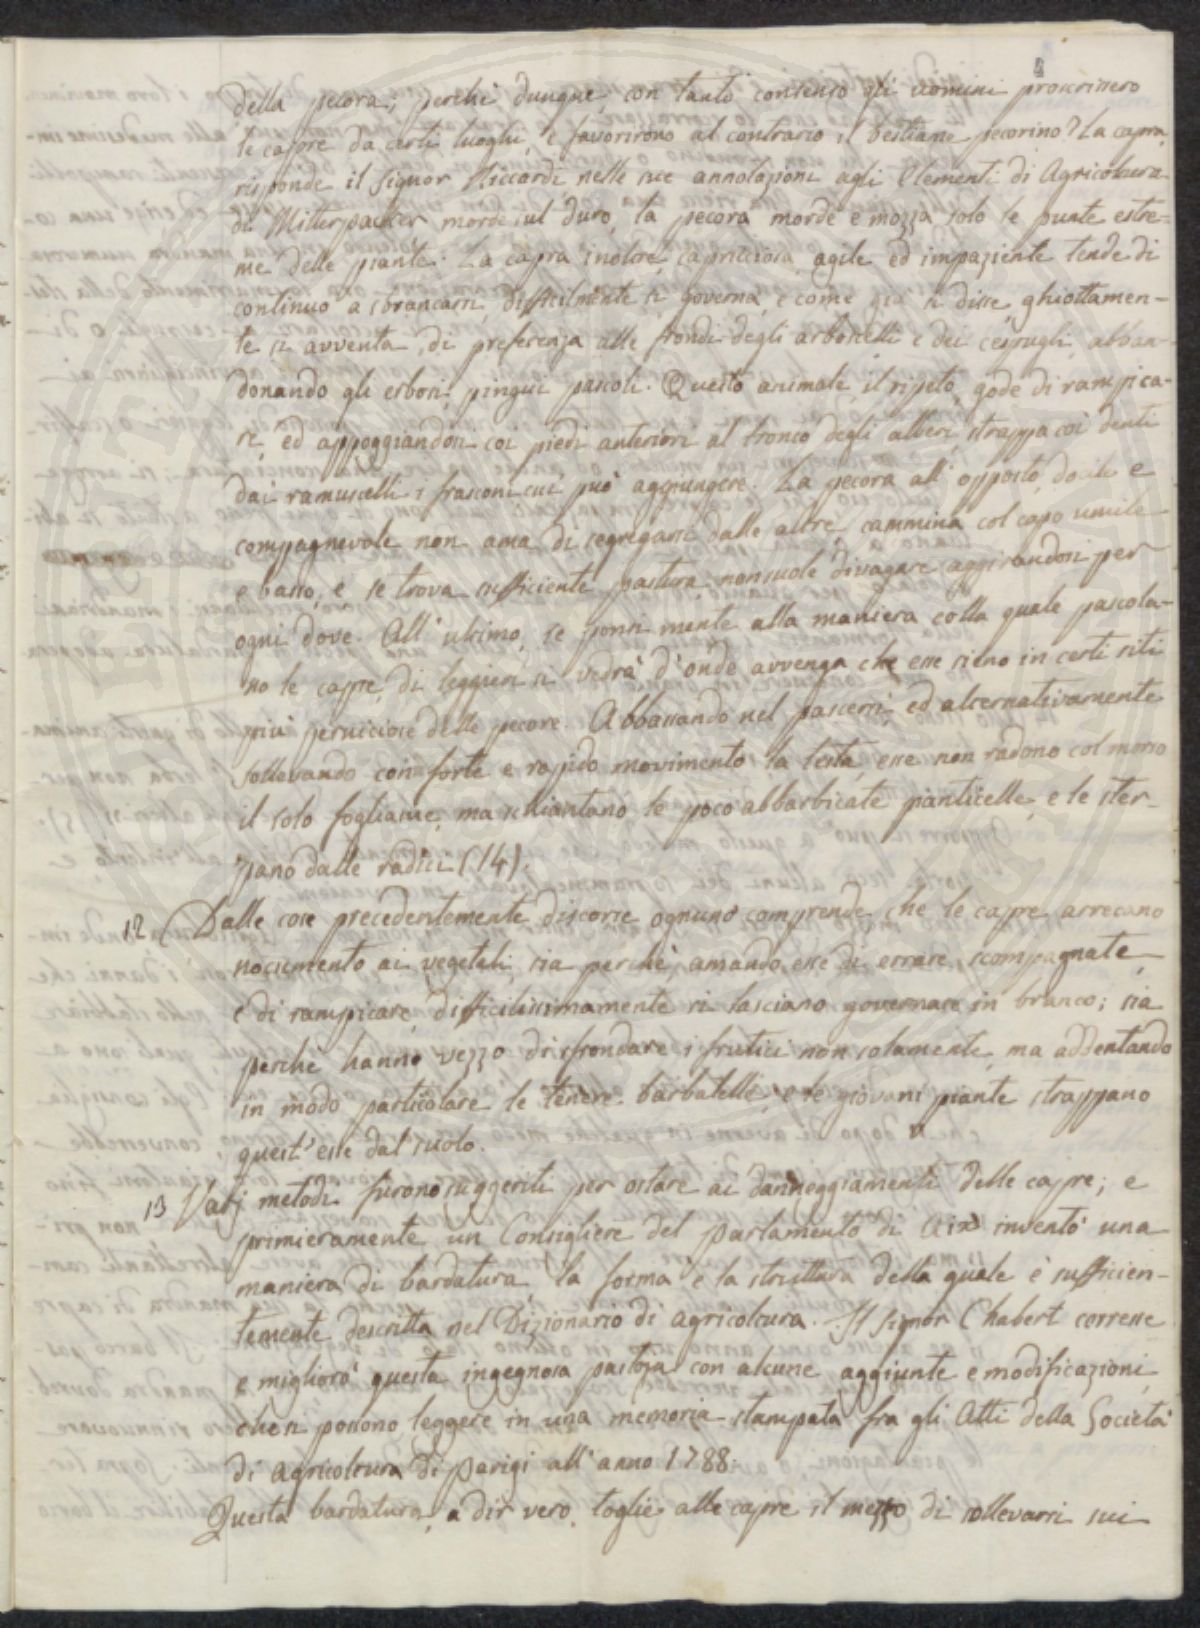 4
della pecora; perchè dunque con tanto consenso gli uomini proscrissero
le capre da certi luoghi, e favorirono al contrario il bestiame pecorino? La capra,
risponde il signor Riccardi nelle sue annotazioni agli Elementi di Agricoltura
di Mitterpacher morde sul duro, la pecora morde e mozza solo le punte estre-
me delle piante. La capra inoltre, capricciosa, agile ed impaziente tende di
continuo a sbrancarsi, difficilmente si governa, e come già si disse, ghiottamen-
te si avventa, di preferenza alle frondi degli arboscelli e dei cespugli, abban-
donando gli erbosi, pingui pascoli. Questo animale, il ripeto, gode di rampica-
re, ed appoggiandosi coi piedi anteriori al tronco degli alberi, strappa coi denti
dai ramuscelli i frasconi cui può aggiungere. La pecora all'opposto, docile e
compagnevole non ama di segregarsi dalle altre, cammina col capo umile
e basso, e se trova sufficiente pastura, non suole divagare aggirandosi per
ogni dove. All'ultimo, se ponsi mente alla maniera colla quale pascola-
no le capre, di leggieri si vedrà d'onde avvenga che esse sieno in certi siti
più perniciose delle pecore. Abbassando nel pascersi, ed alternativamente
sollevando con forte e rapido movimento la testa, esse non radono col morso
il solo fogliame, ma schiantano le poco abbarbicate pianticelle, e le ster-
pano dalle radici (14).
12 Dalle cose precedentemente discorse ognuno comprende che le capre arrecano
nocumento ai vegetali, sia perchè amando esse di errare, scompagnate,
e di rampicare, difficilissimamente si lasciano governare in branco; sia
perchè hanno vezzo di sfrondare i frutici non solamente, ma addentando
in modo particolare le tenere barbatelle, e le giovani piante strappano
quest'esse dal suolo.
13 Varj metodi furono suggeriti per ostare ai danneggiamenti delle capre; e
primieramente un Consigliere del Parlamento di Aix inventò una
maniera di bardatura la forma e la struttura della quale è sufficien-
temente descritta nel Dizionario di agricoltura. Il signor Chabert corresse
e migliorò questa ingegnosa pastoja con alcune aggiunte e modificazioni,
che si possono leggere in una memoria stampata fra gli Atti della Società
di Agricoltura di Parigi all'anno 1788.
Questa bardatura, a dir vero, toglie alle capre il mezzo di sollevarsi sui